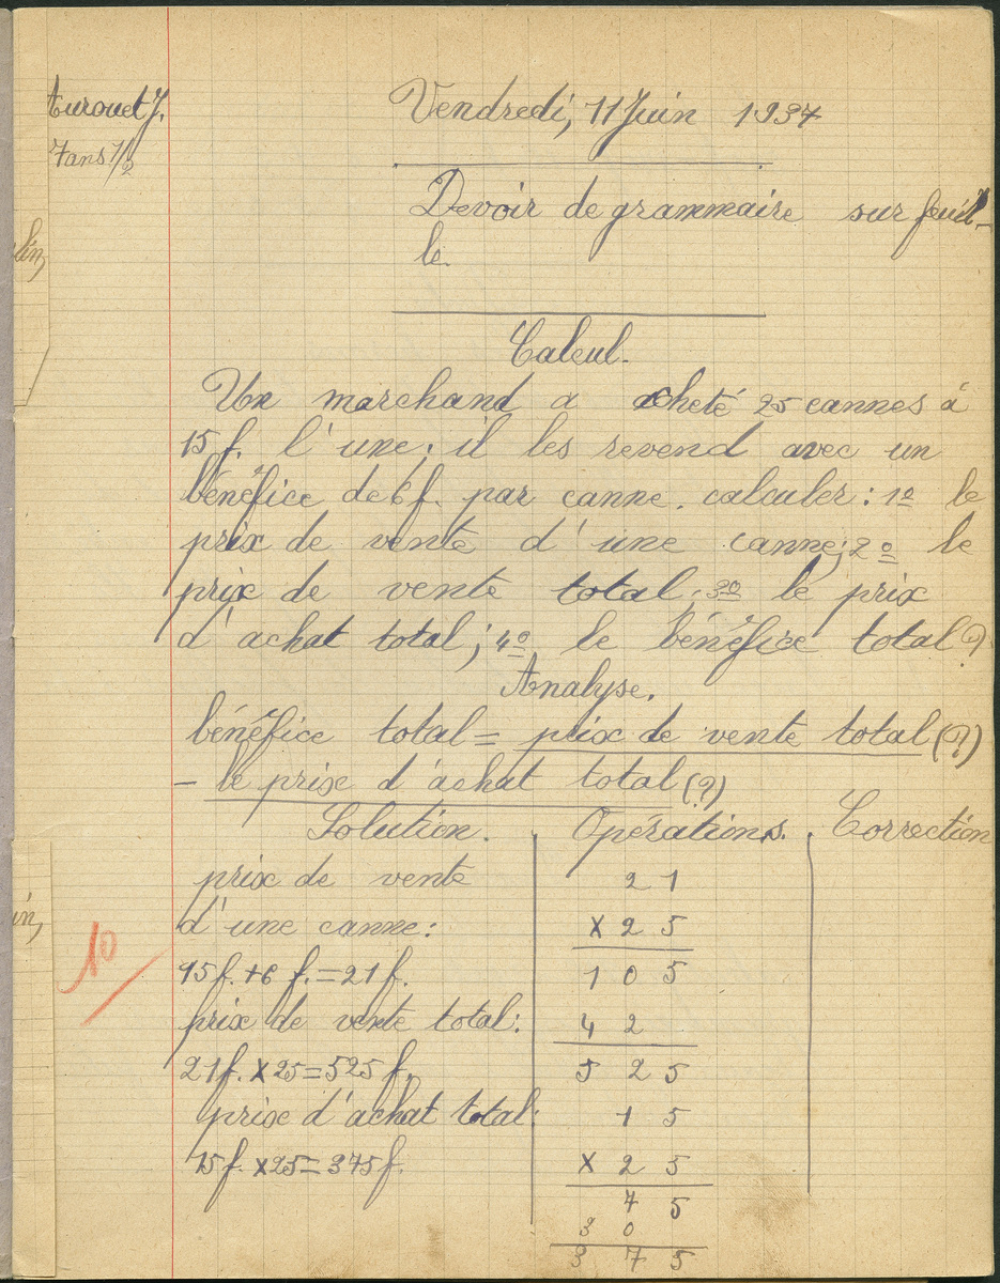 turouet J.
7 ans 1/2
Vendredi, 11 Juin 1937
Devoir de grammaire sur feuil-
le.
Calcul.
Un marchand a acheté 25 cannes à
15 f. l'une; il les revend avec un
bénéfice de 6 f. par canne. calculer: 1º le
prix de vente d'une canne; 2º le
prix de vente total; 3º le prix
d'achat total; 4º le bénéfice total(?)
Analyse.
bénéfice total = prix de vente total (?)
- le prix d'achat total (?)
Solution. Opérations. Correction
prix de vente
d'une canne:
15 f. + 6 f. = 21 f.
prix de vente total:
21 f. x 25 = 525 f.
prix d'achat total:
15 f. x 25 = 375 f.
21
x 25
105
42
525
15
x 25
75
30
375
lin,
in,
10